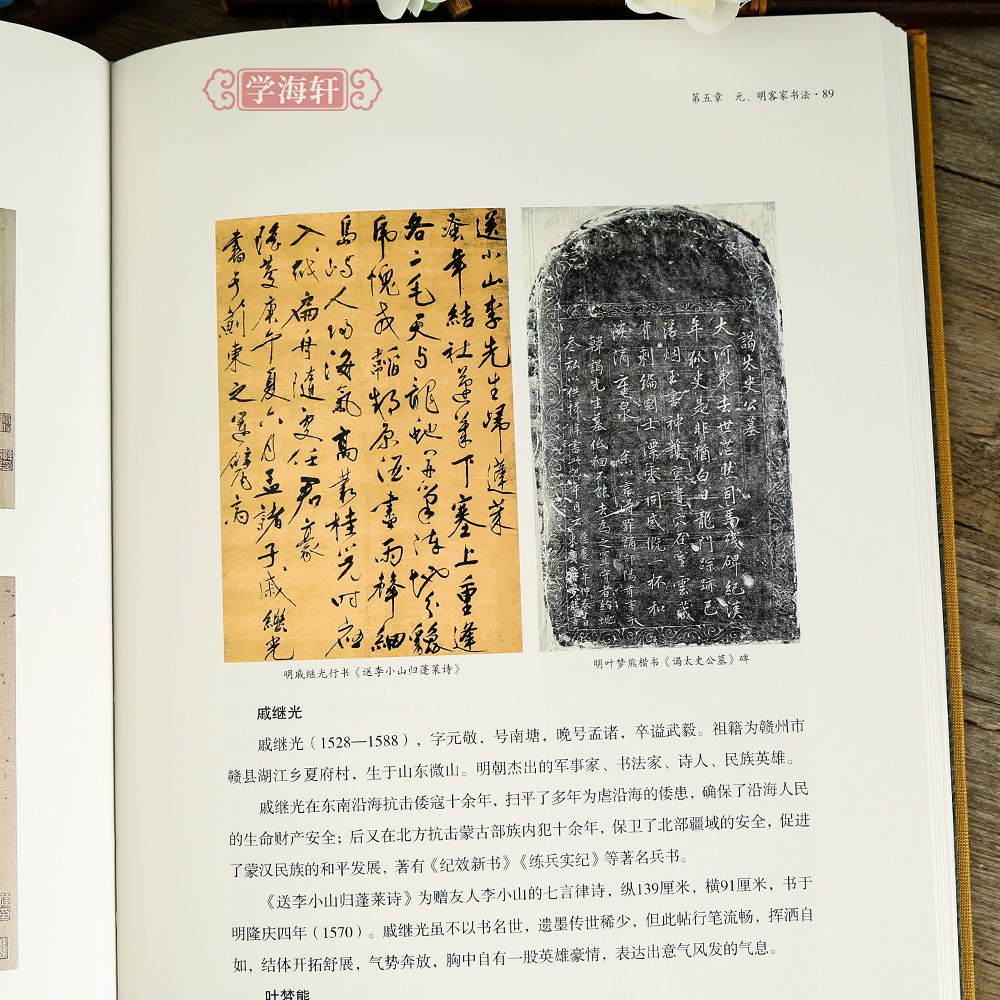 学海轩
第五章 元、明客家书法·89
送小山李先生歸蓬莱
蚤年結社蓬莱下塞上重逢
各二毛天与龍蛇开筆阵地分貔
虎愧戎韜原酒盡雨聲細
島嶼人归海氣高叢桂时
入扁舟隨任君豪
隆慶庚午夏六月孟諸子戚繼光
書于薊東之運甓
謁太史公墓
大河東去世茫然司馬碑紀漢
年孤史是非猶白日龍門踪跡已
烟玉書神護空遺穴石室雲藏
有剩編國士漂零同感慨一杯和
淚滴重泉
明戚继光行书《送李小山归蓬莱诗》
明叶梦熊楷书《谒太史公墓》碑
戚继光
戚继光（1528—1588），字元敬，号南塘，晚号孟诸，卒谥武毅。祖籍为赣州市
赣县湖江乡夏府村，生于山东微山。明朝杰出的军事家、书法家、诗人、民族英雄。
戚继光在东南沿海抗击倭寇十余年，扫平了多年为虐沿海的倭患，确保了沿海人民
的生命财产安全；后又在北方抗击蒙古部族内犯十余年，保卫了北部疆域的安全，促进
了蒙汉民族的和平发展，著有《纪效新书》《练兵实纪》等著名兵书。
《送李小山归蓬莱诗》为赠友人李小山的七言律诗，纵139厘米，横91厘米，书于
明隆庆四年（1570）。戚继光虽不以书名世，遗墨传世稀少，但此帖行笔流畅，挥洒自
如，结体开拓舒展，气势奔放，胸中自有一股英雄豪情，表达出意气风发的气息。
叶梦熊